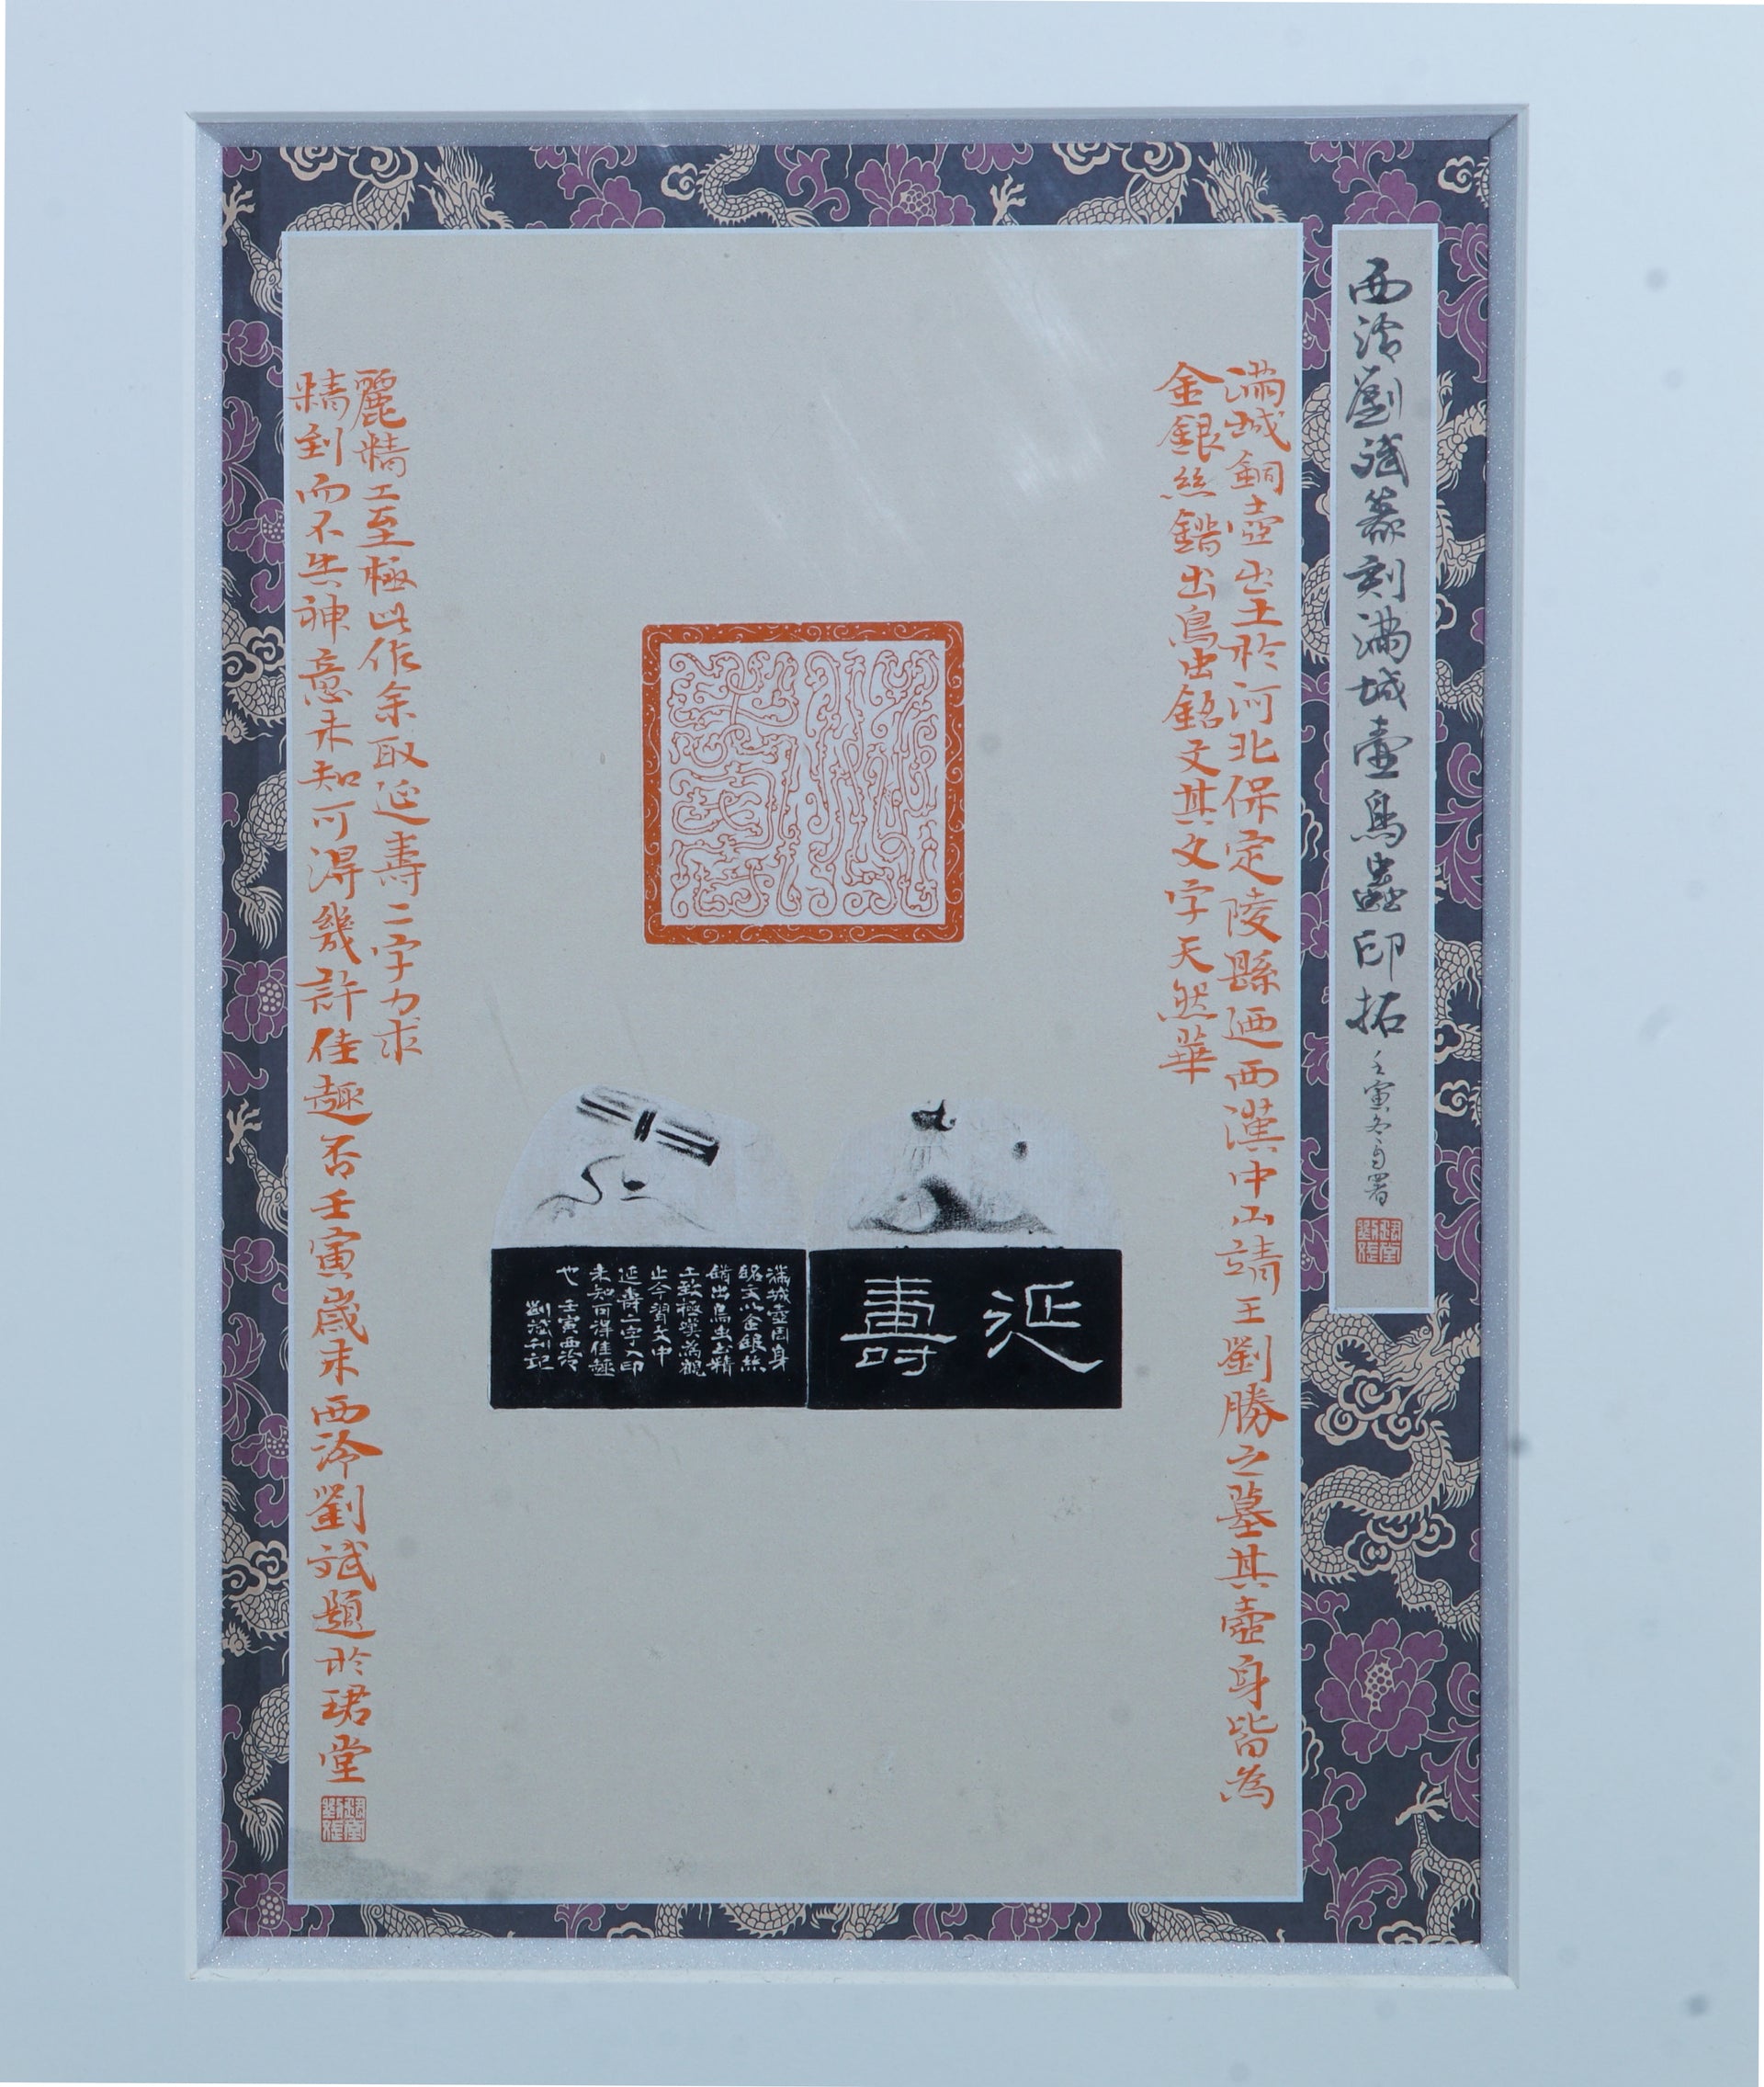 西泠劉斌篆刻滿城壺鳥蟲印拓
壬寅冬自署
滿城銅壺出土於河北保定陵縣迺西漢中山靖王劉勝之墓其壺身皆為
金銀絲錯出鳥虫銘文其文字天然華
麗精工至極此作余取延壽二字力求
精到而不失神意未知可得幾許佳趣否壬寅歲末西泠劉斌題於珺堂
延壽
滿城壺周身
銘文以金銀絲
錯出鳥虫書精
工致極嘆為觀
止今習文中
延壽二字入印
未知可得佳趣
也壬寅西泠
劉斌刊記